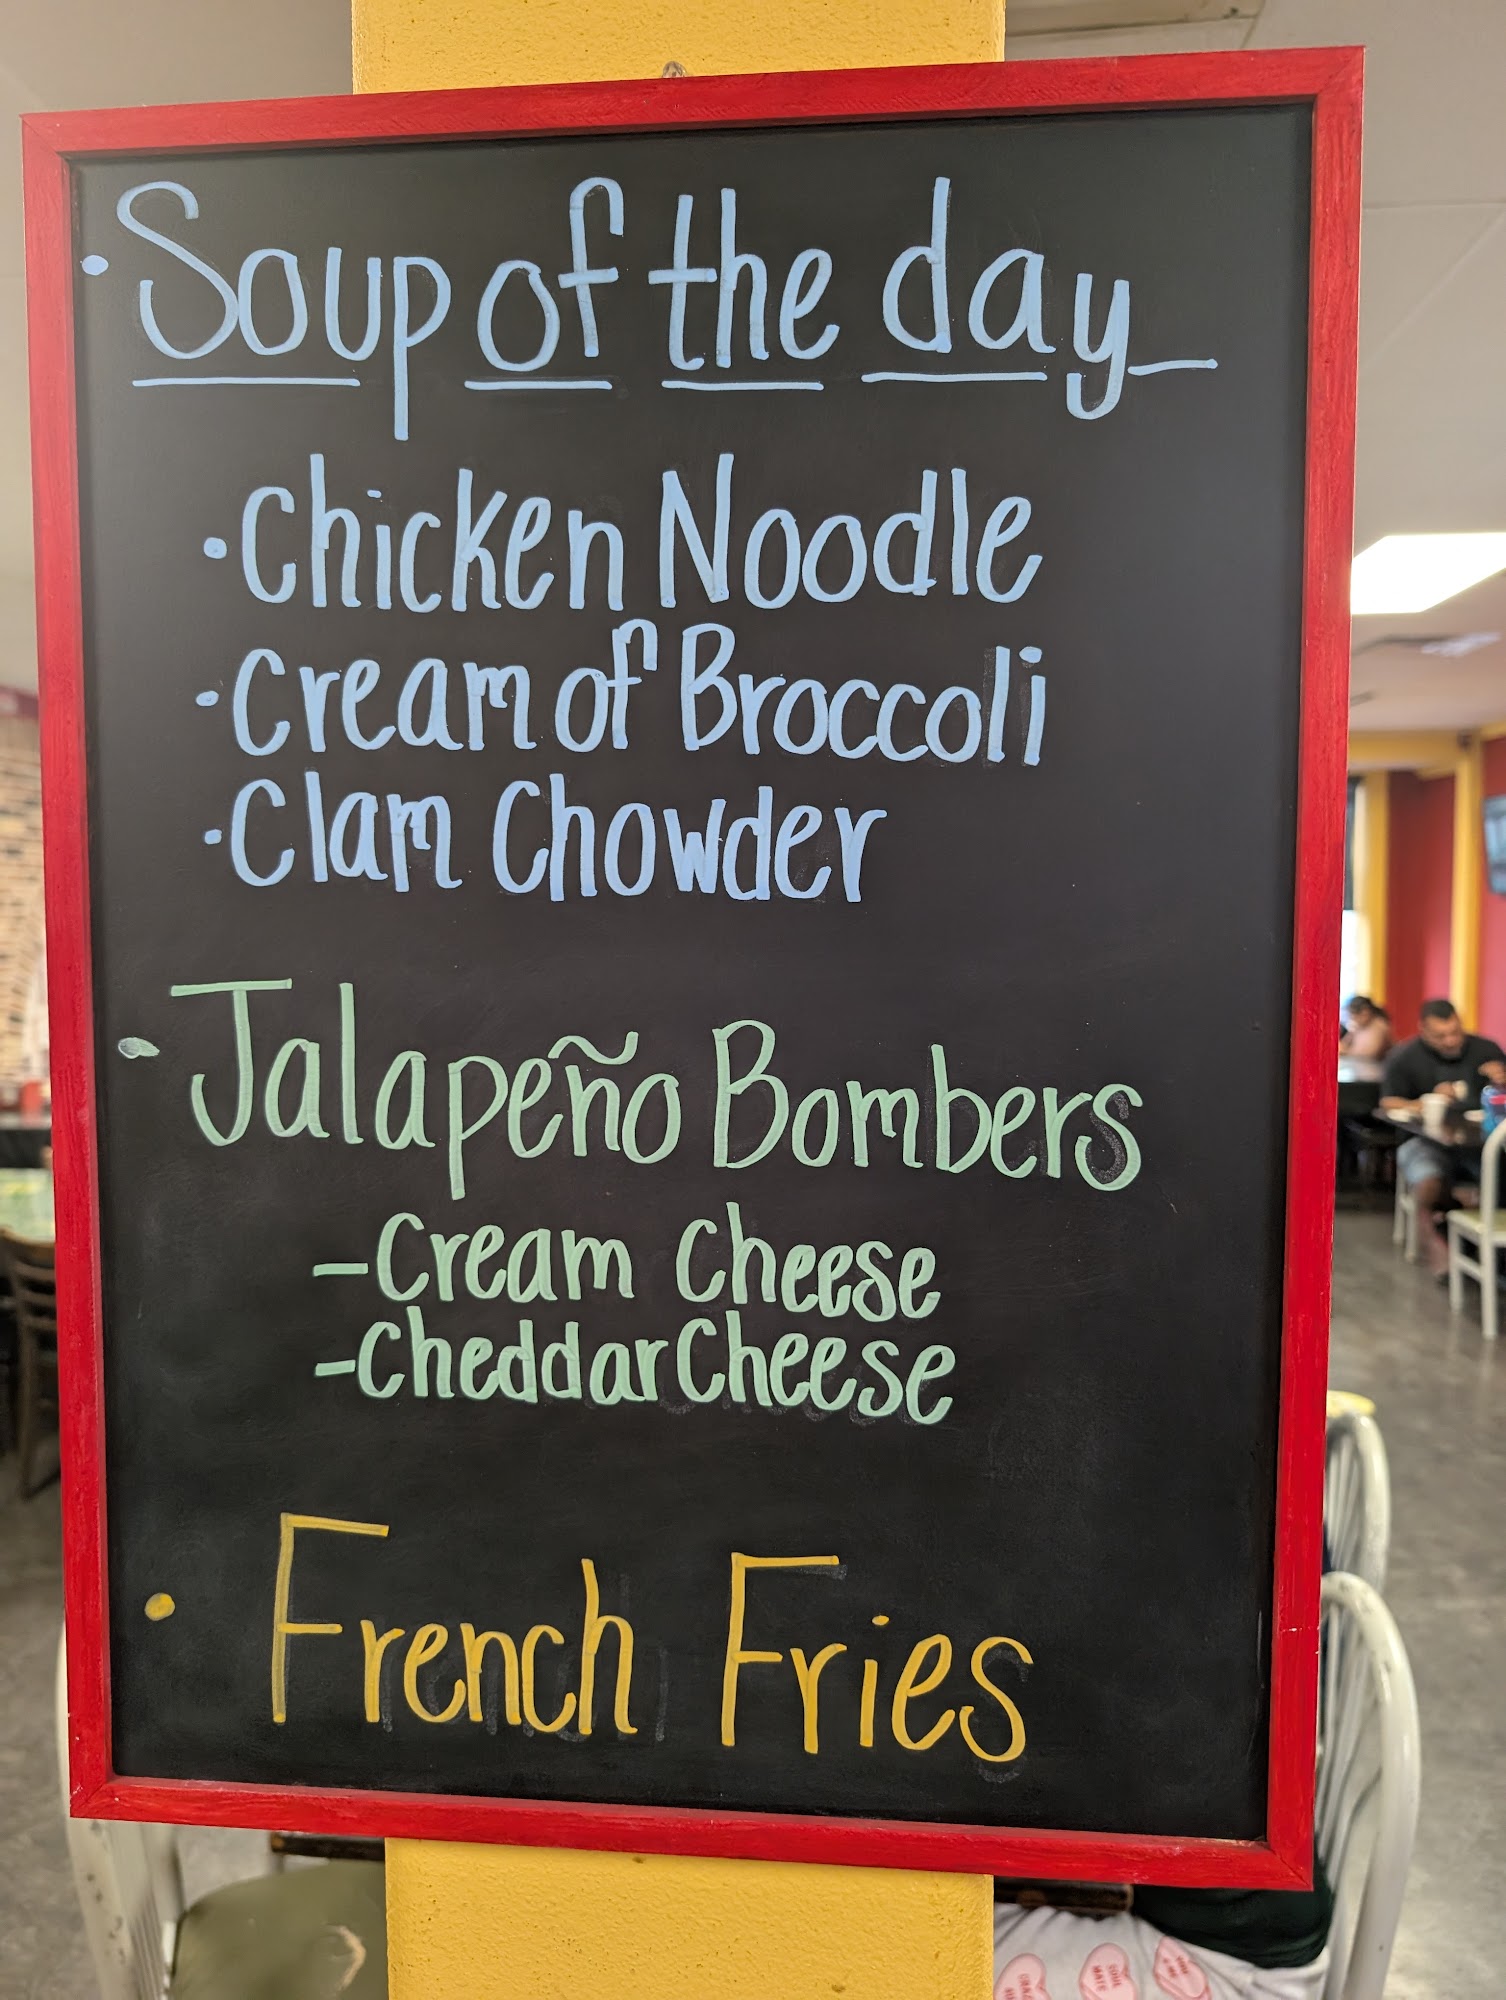 • Soup of the day
• Chicken Noodle
• Cream of Broccoli
• Clam Chowder
• Jalapeño Bombers
- Cream Cheese
- Cheddar Cheese
• French Fries